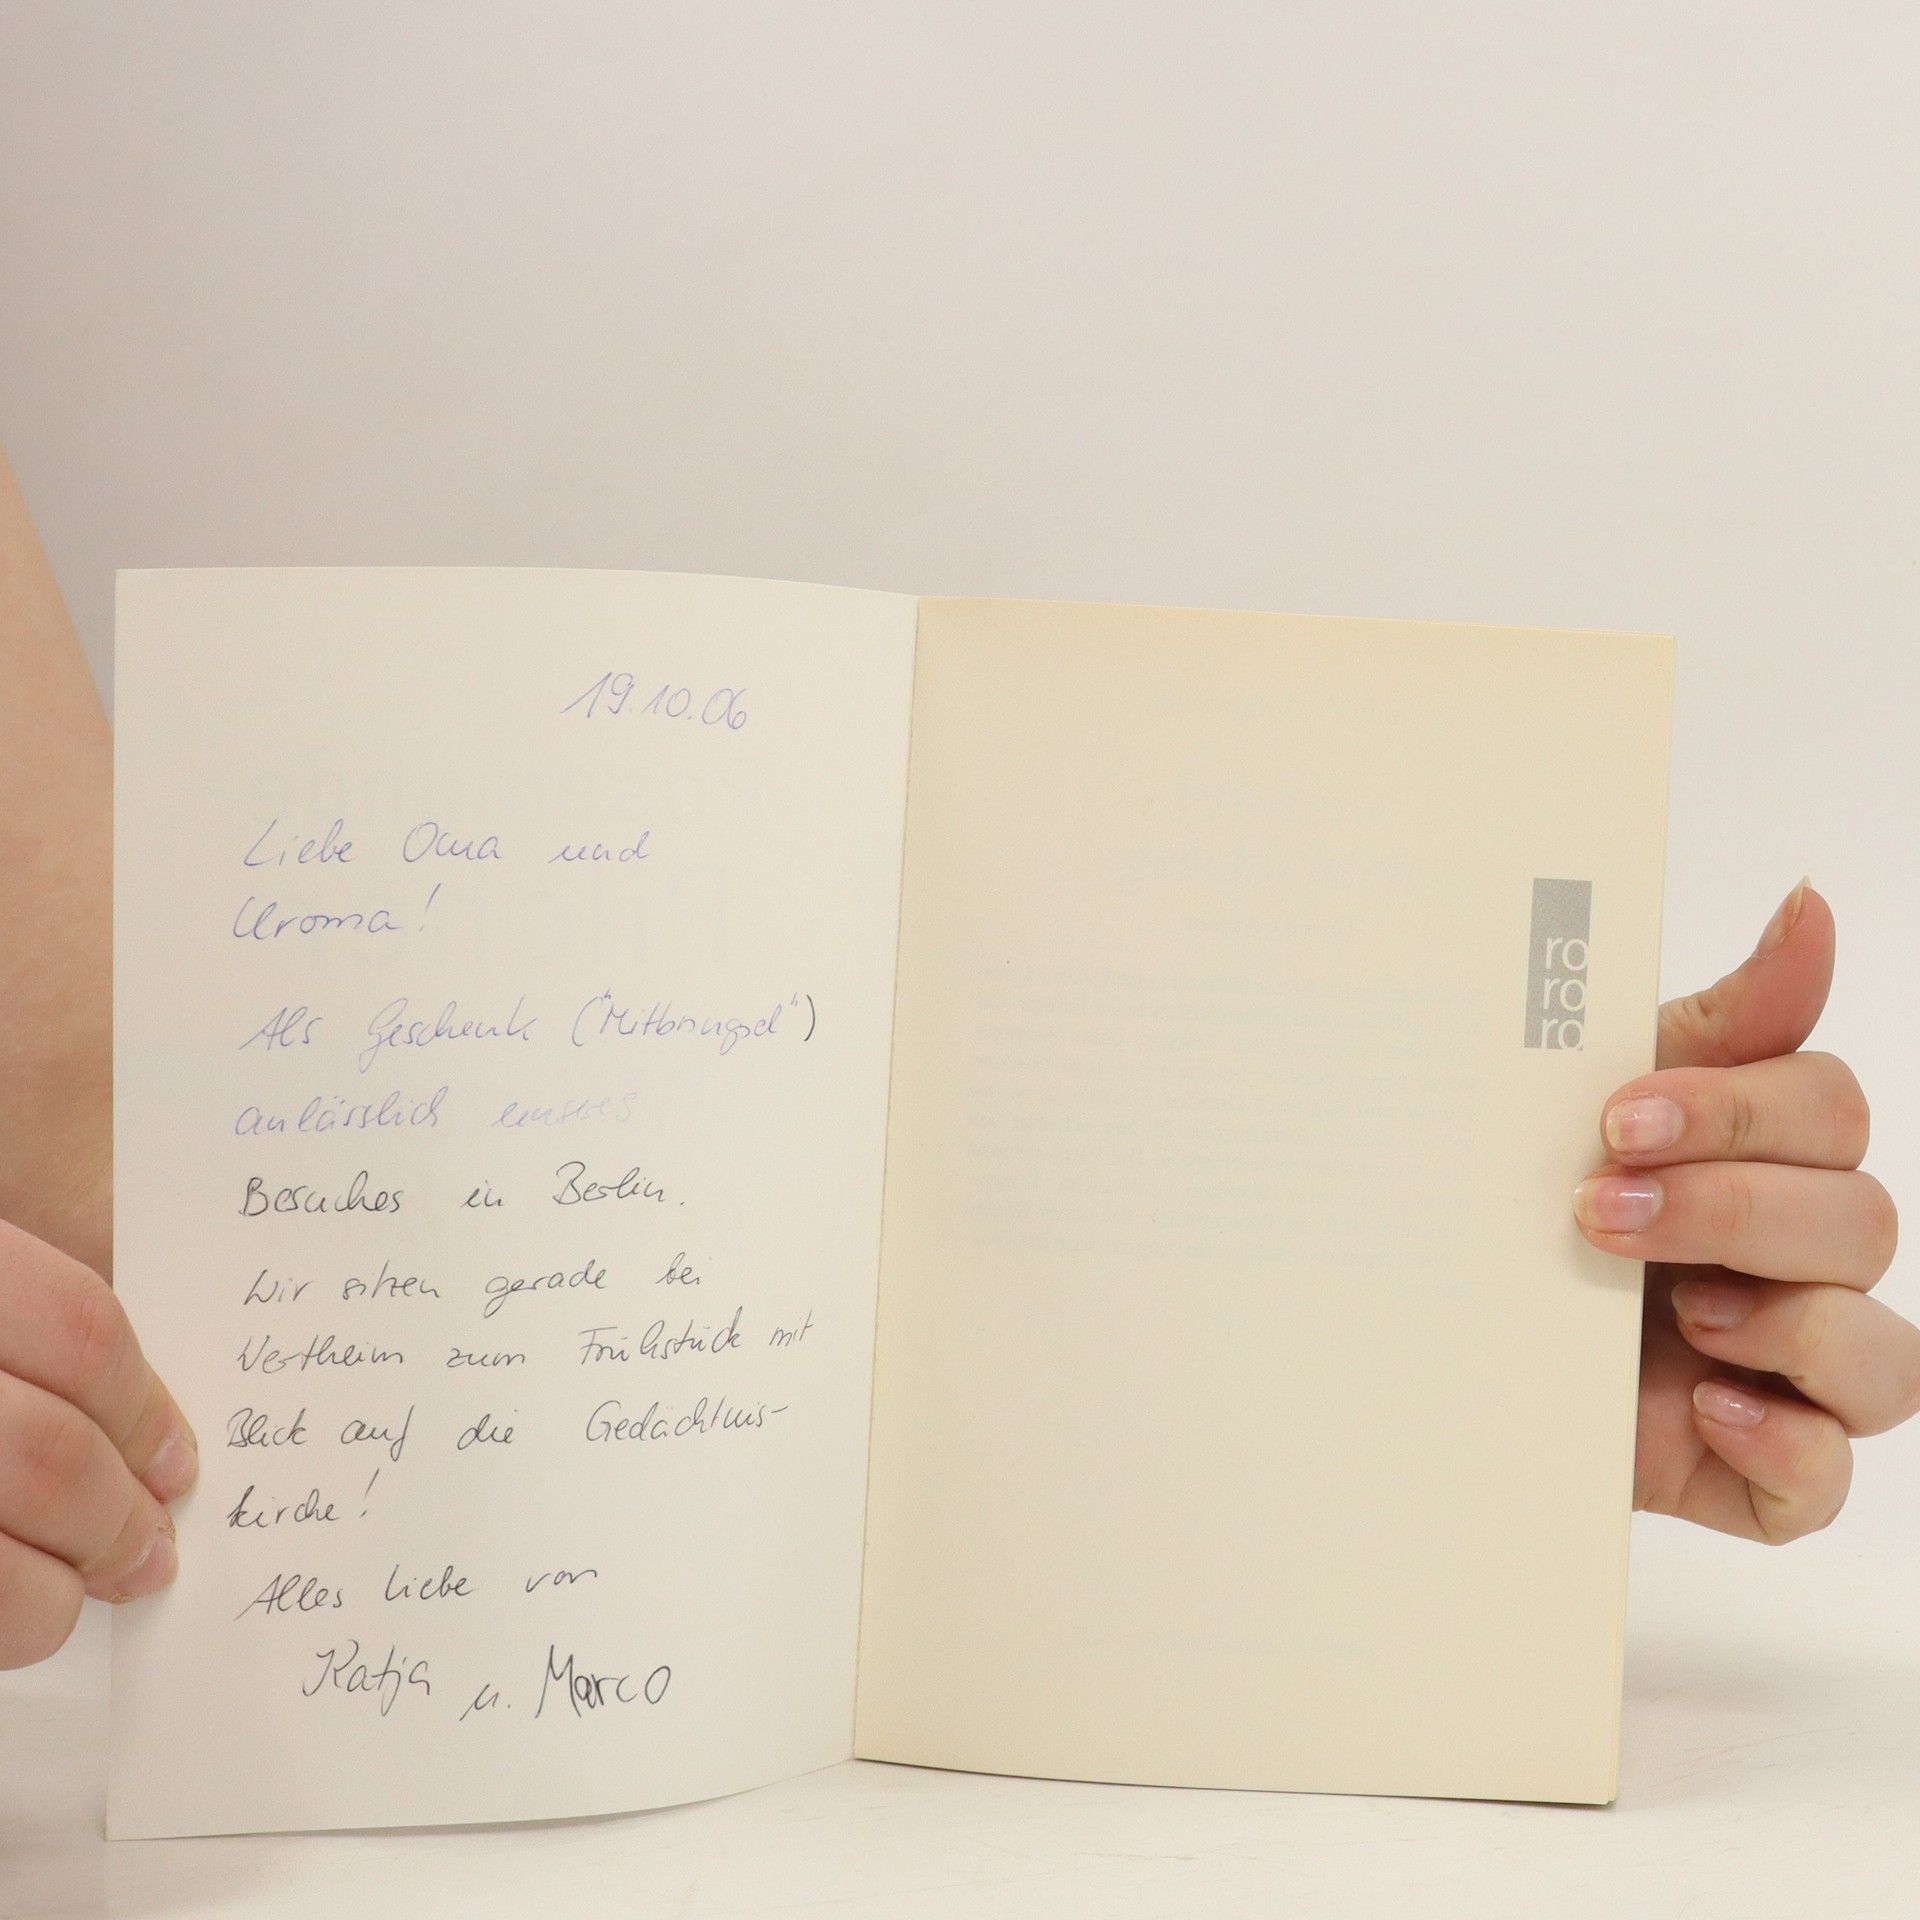 19.10.06
Liebe Oma und
Uroma!
Als Geschenk ("Mitbringsel")
anlässlich unseres
Besuches in Berlin.
Wir sitzen gerade bei
Wertheim zum Frühstück mit
Blick auf die Gedächtnis-
kirche!
Alles Liebe von
Katja u. Marco
ro
ro
ro